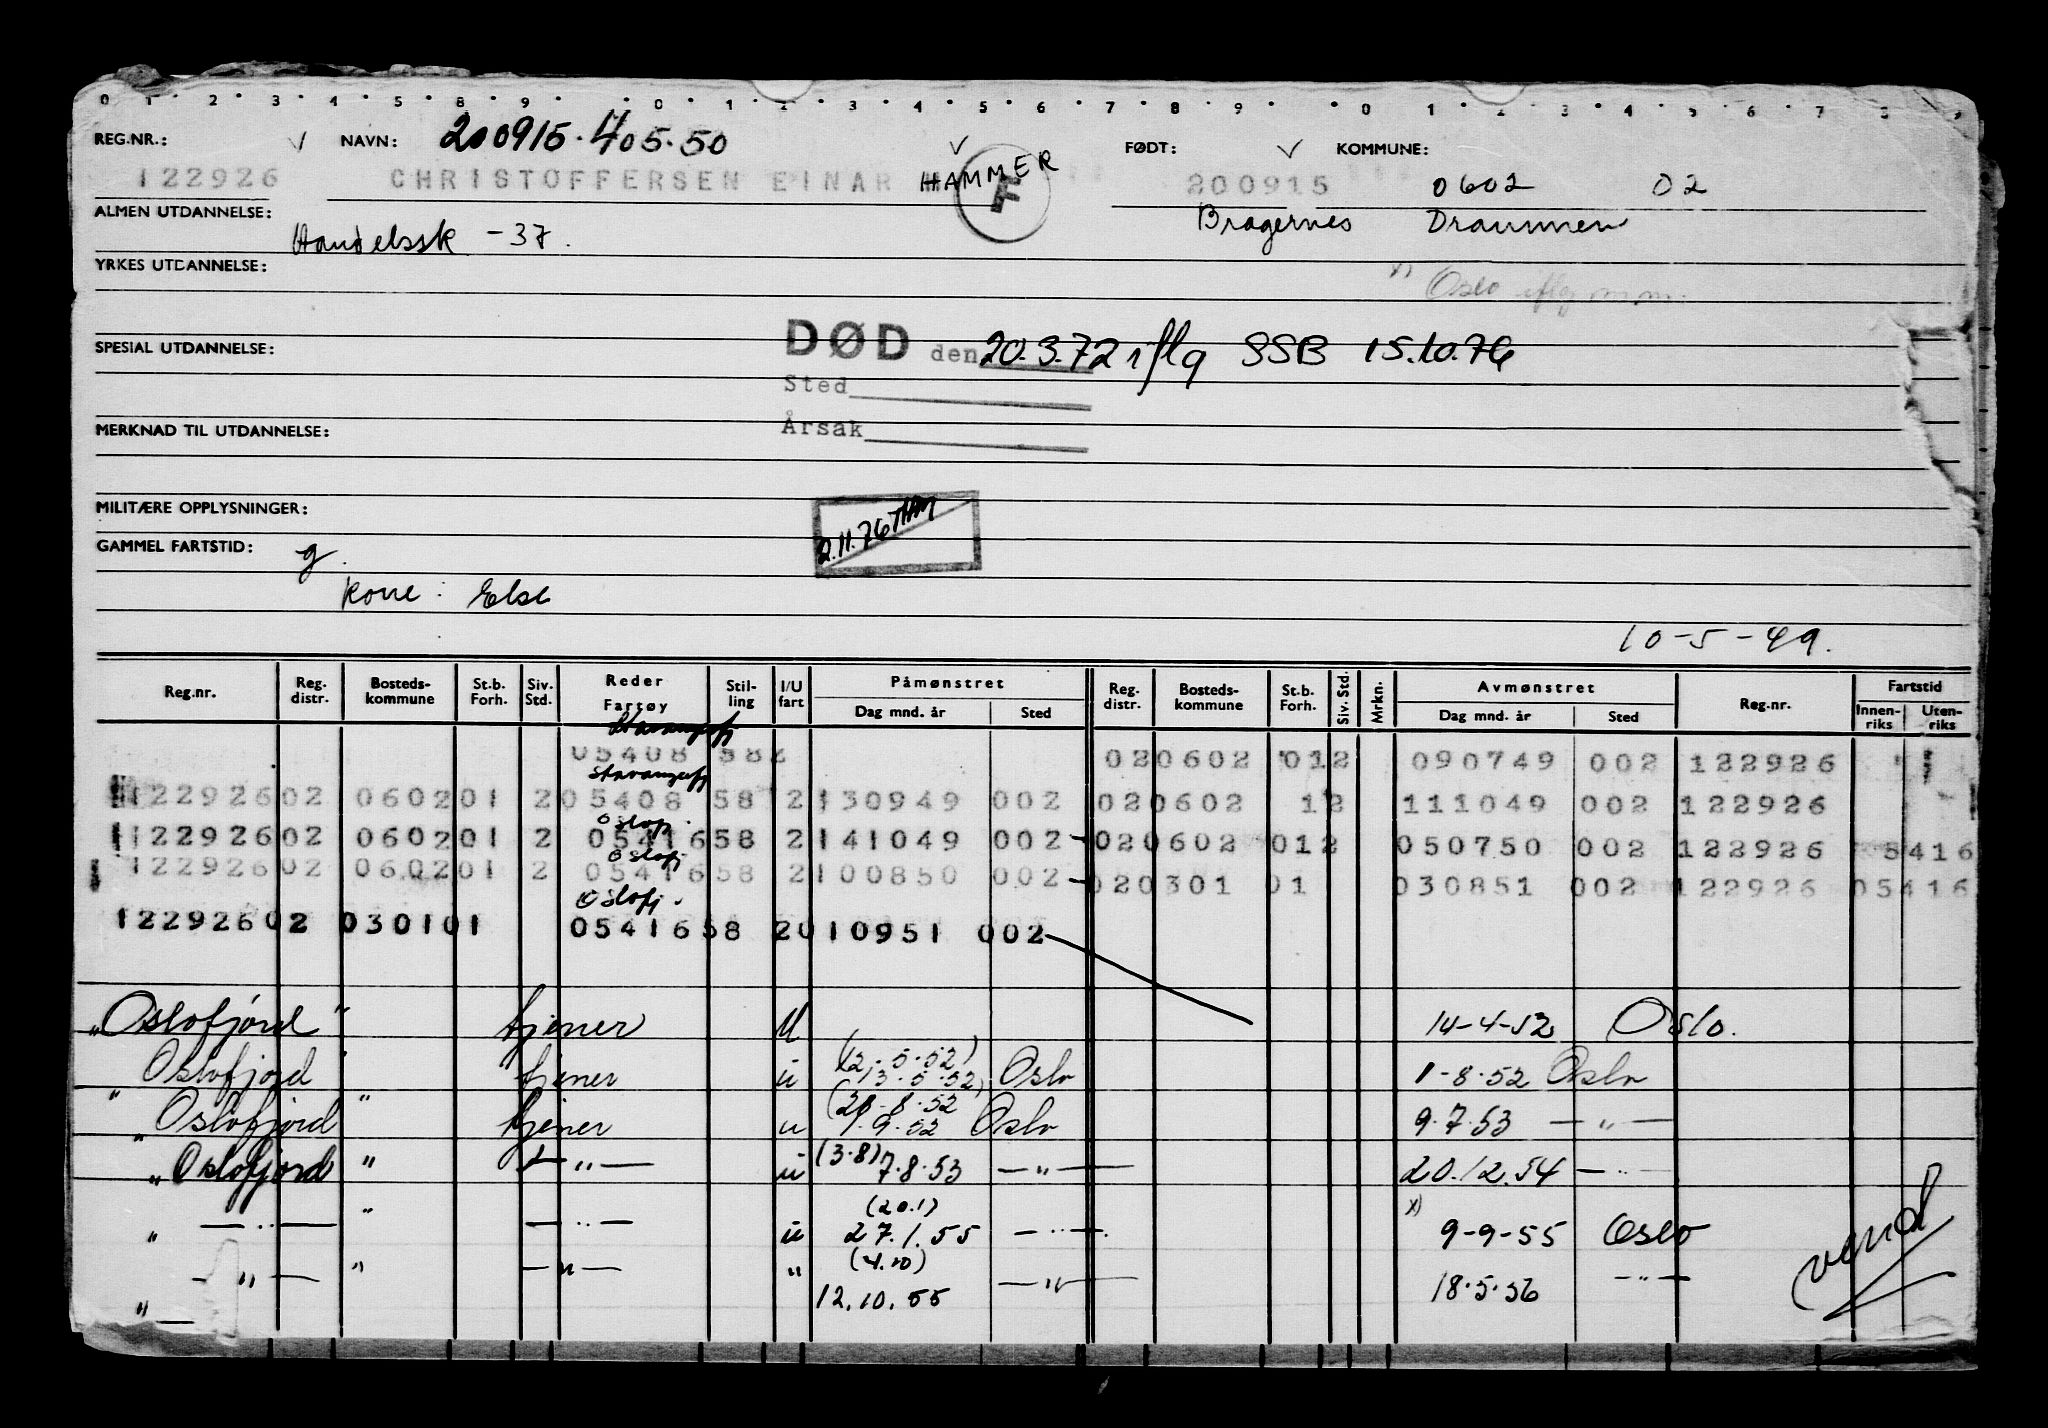 0 1 2 3 4 5 8 9 0 1 2 3 4 5 6 7 8 9 0 1 2 3 4 5 6 7 8 9
REG.NR.: NAVN: 200915.405.50 FØDT: KOMMUNE:
122926 CHRISTOFFERSEN EINAR HAMMER F 200915 0602 02
ALMEN UTDANNELSE: Handelssk -37. Bragernes Drammen
YRKES UTDANNELSE: x) Oslo iflg m.m.
SPESIAL UTDANNELSE: DØD den 20.3.72 iflg SSB 15.10.76
Sted
MERKNAD TIL UTDANNELSE: Årsak
MILITÆRE OPPLYSNINGER: 2.11.76 THM
GAMMEL FARTSTID: g.
Kone: Else
10-5-49.
Reg.nr. Reg. distr. Bosteds- kommune St.b. Forh. Siv. Std. Reder Fartøy Stil- ling I/U fart Påmønstret Dag mnd. år Sted Reg. distr. Bosteds- kommune St.b. Forh. Siv. Std. Mrkn. Avmønstret Dag mnd. år Sted Reg.nr. Fartstid Innen- riks Uten- riks
Stavangerfj
05408 582 020602 012 090749 002 122926
Stavangerfj
122926 02 0602 01 2 05408 58 2 130949 002 020602 12 111049 002 122926
Oslofj.
122926 02 0602 01 2 05416 58 2 141049 002 020602 012 050750 002 122926 5416
Oslofj
122926 02 0602 01 2 05416 58 2 100850 002 020301 01 030851 002 122926 05416
Oslofj.
122926 02 0301 01 05416 58 2 010951 002
"Oslofjord" tjener u 14-4-52 Oslo.
"Oslofjord" tjener u (12.5.52) 13.5.52 Oslo 1-8-52 Oslo
"Oslofjord" tjener u (28-8-52) 1.9.52 Oslo 9.7.53 — " —
"Oslofjord" — " — u (3.8) 7.8.53 — " — 20.12.54 — " —
" — " — " — " — u (20.1) 27.1.55 — " — x) 9-9-55 Oslo
" — " — " — " — " (4.10) 12.10.55 — " — 18.5.56 — " —
vend
" —